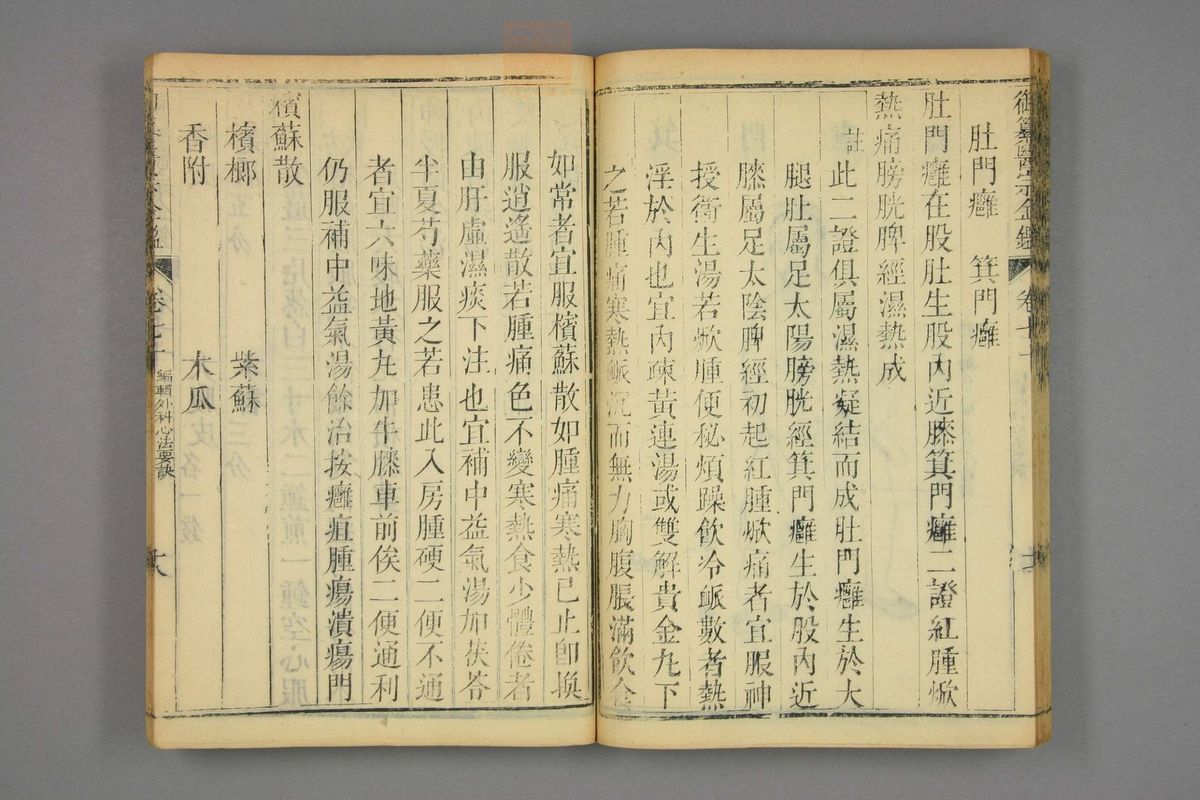 御纂醫宗金鑑 卷七十
肚門癰 箕門癰
肚門癰在股肚生股內近膝箕門癰二證紅腫焮
熱痛膀胱脾經濕熱成
註
此二證俱屬濕熱凝結而成肚門癰生於大
腿肚屬足太陽膀胱經箕門癰生於股內近
膝屬足太陰脾經初起紅腫焮痛者宜服神
授衛生湯若焮腫便秘煩躁飲冷脈數者熱
淫於內也宜內疎黃連湯或雙解貴金丸下
之若腫痛寒熱脈沉而無力胸腹脹滿飲食
如常者宜服檳蘇散如腫痛寒熱已止卽換
服逍遙散若腫痛色不變寒熱食少體倦者
由肝虛濕痰下注也宜補中益氣湯加茯苓
半夏芍藥服之若患此入房腫硬二便不通
者宜六味地黃丸加牛膝車前俟二便通利
仍服補中益氣湯餘治按癰疽腫瘍潰瘍門
檳蘇散
檳榔 紫蘇
香附 木瓜
卷七十 編輯外科心法要訣